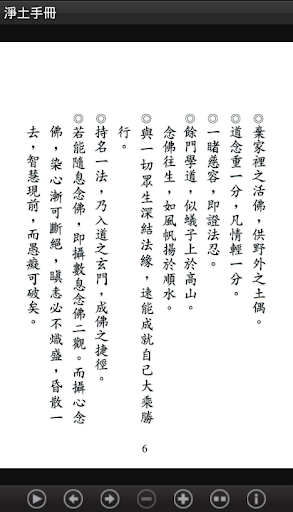 淨土手冊
◎棄家裡之活佛，供野外之土偶。
◎道念重一分，凡情輕一分。
◎一睹慈容，即證法忍。
◎餘門學道，似蟻子上於高山。
念佛往生，如風帆揚於順水。
◎與一切眾生深結法緣，速能成就自己大乘勝
行。
◎持名一法，乃入道之玄門，成佛之捷徑。
◎若能隨息念佛，即攝數息念佛二觀。而攝心念
佛，染心漸可斷絕，瞋恚必不熾盛，昏散一
去，智慧現前，而愚癡可破矣。
6